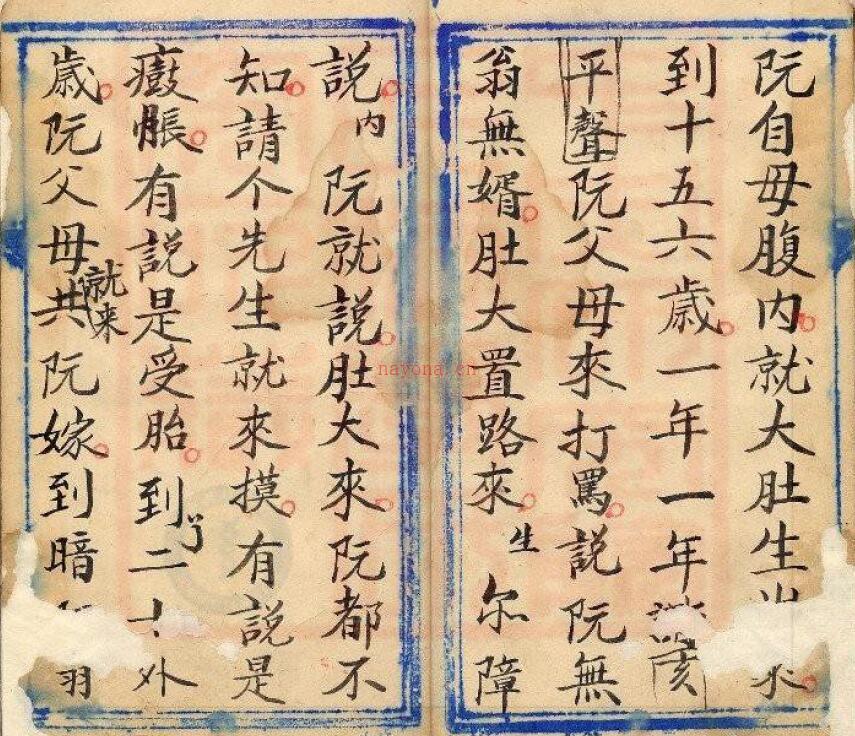 阮自母腹内就大肚生
到十五六歲一年一年
平聲阮父母來打罵説阮無
翁無婿肚大置路來生尔障
説内阮就説肚大來阮都不
知請个先生就來摸有説是
脹有説是受胎到了二十外
歲阮父母就来共阮嫁到暗羽
nayona.cn